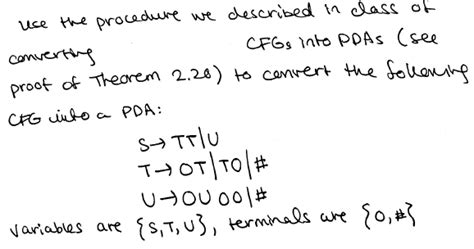 Use the procedure we described in class of
converting CFGs into PDAs (see
proof of Theorem 2.20) to convert the following
CFG into a PDA:
S→TT|U
T→0T|T0|#
U→0U00|#
Variables are {S,T,U}, terminals are {0,#}